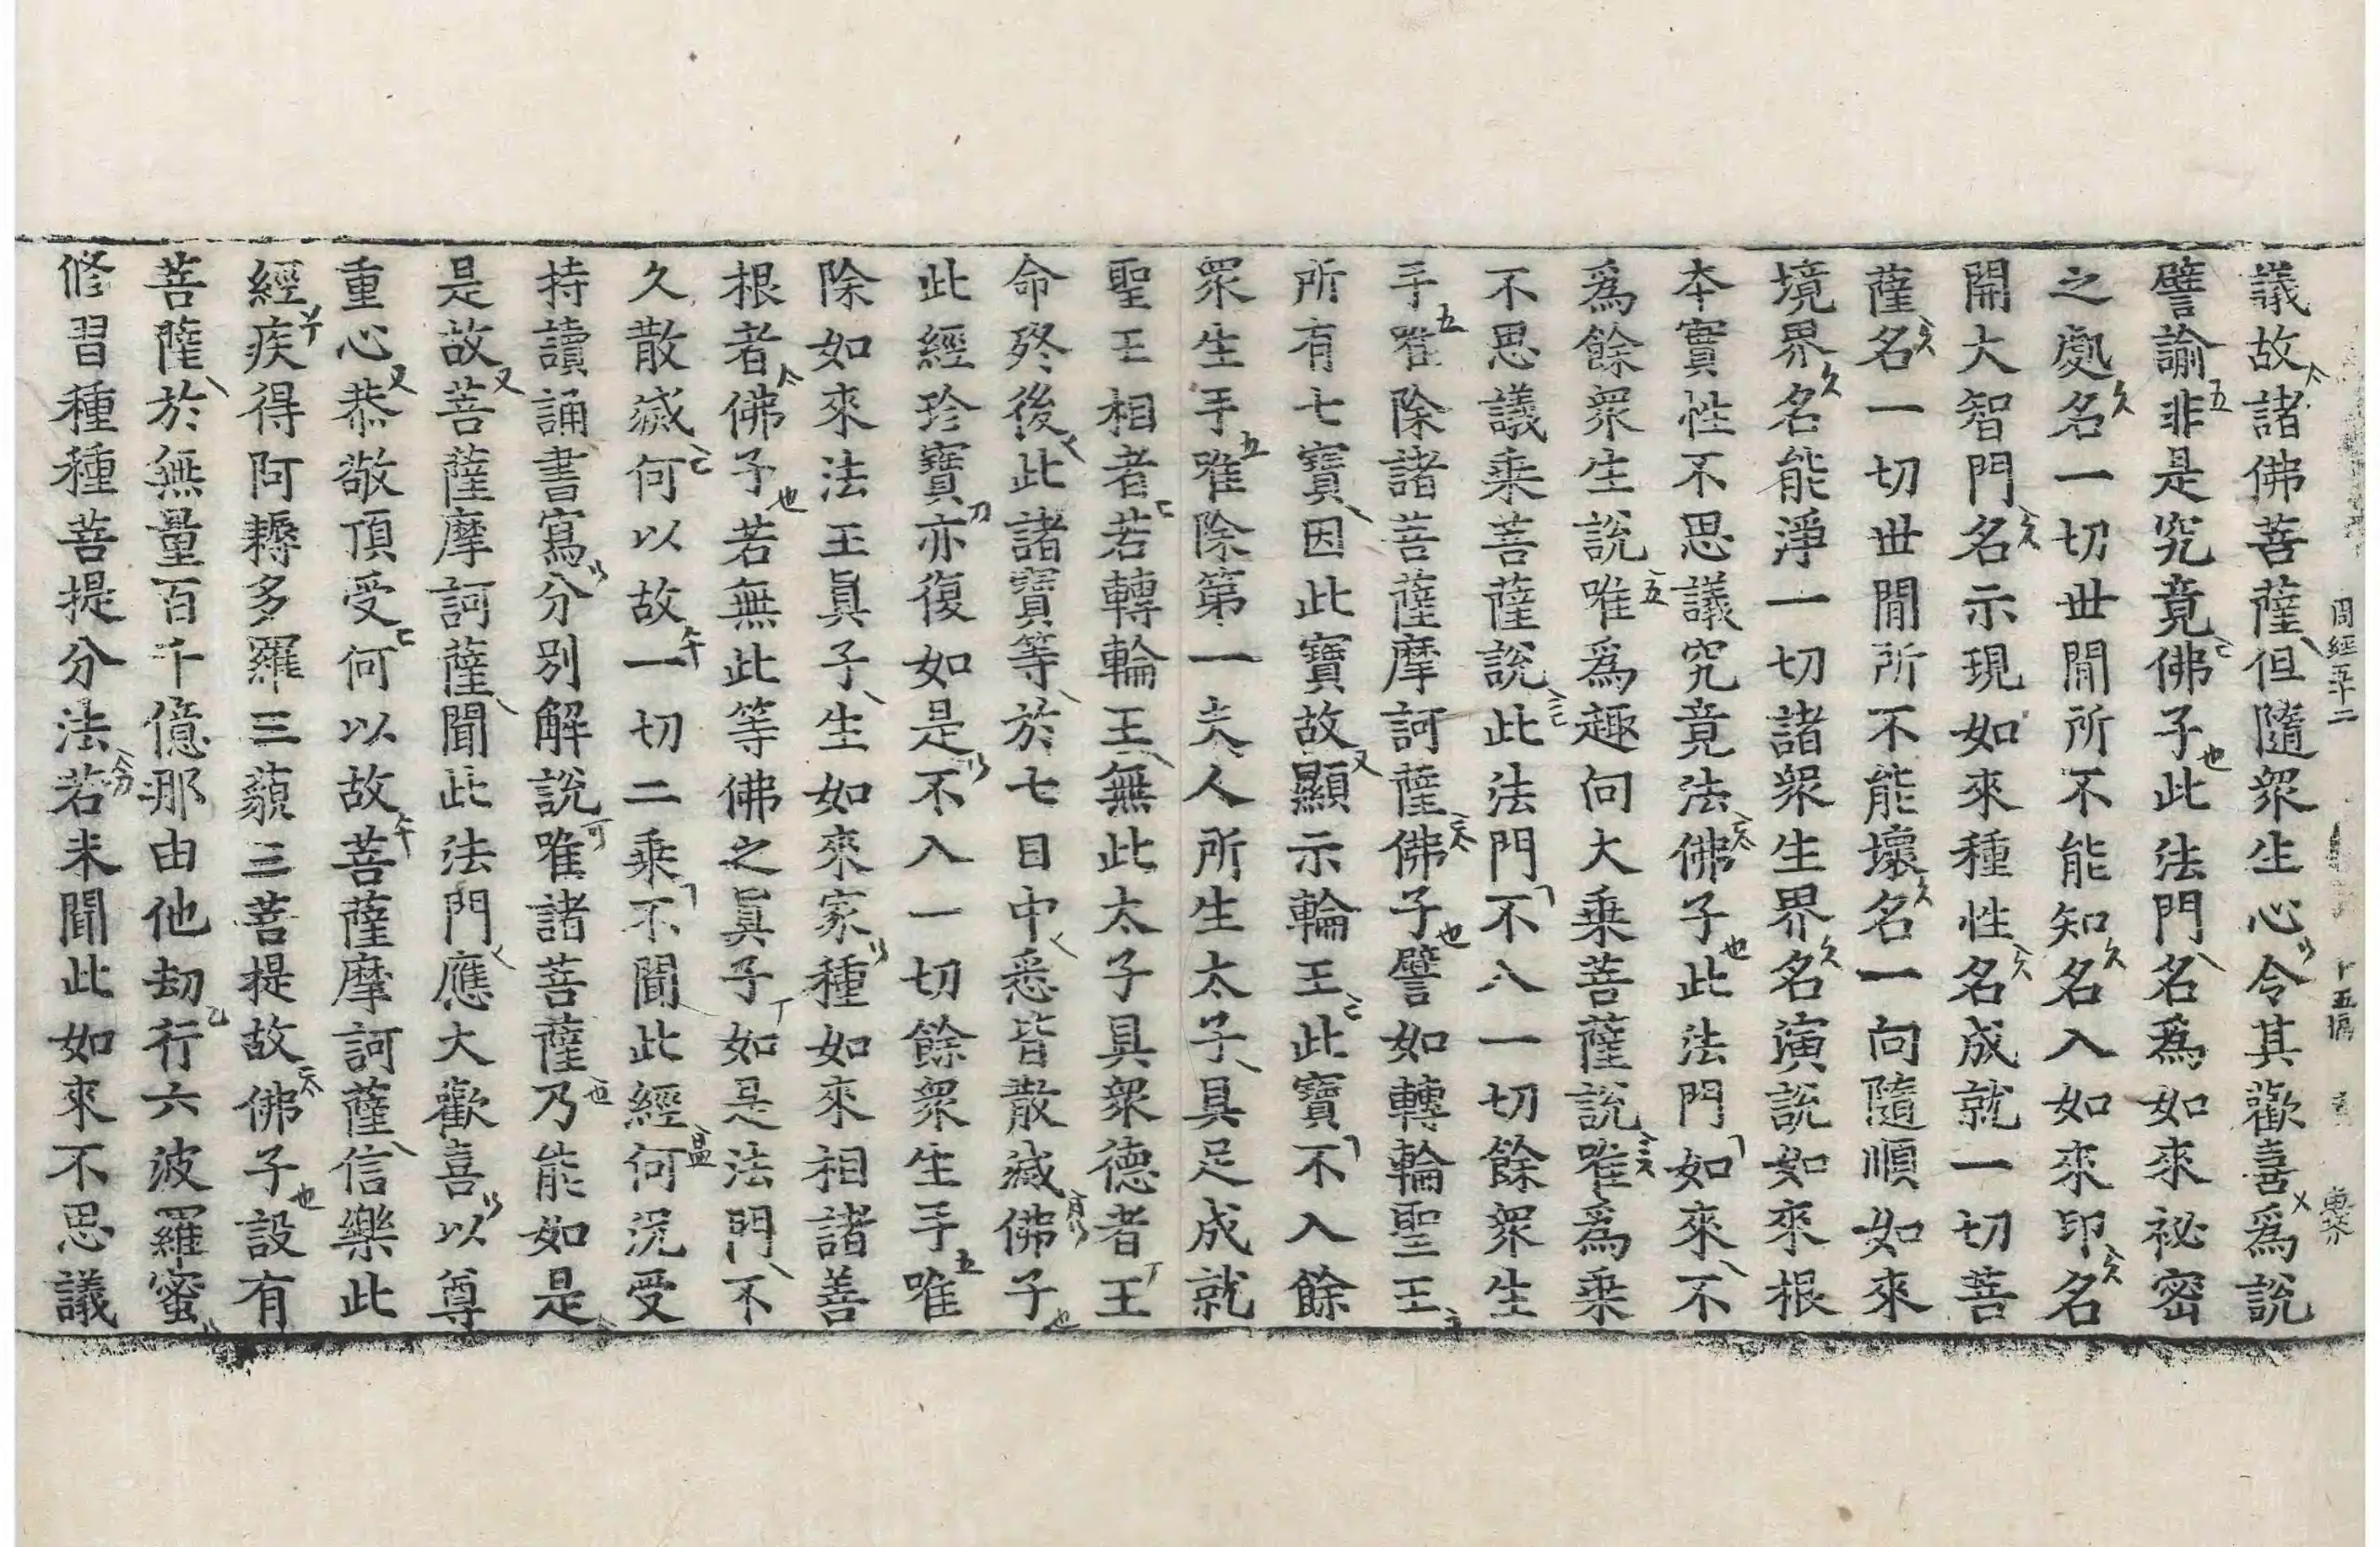 周經五十二
議故諸佛菩薩但隨衆生心令其歡喜爲說
譬諭非是究竟佛子此法門名爲如來祕密
之處名一切世閒所不能知名入如來印名
開大智門名示現如來種性名成就一切菩
薩名一切世閒所不能壞名一向隨順如來
境界名能淨一切諸衆生界名演說如來根
本實性不思議究竟法佛子此法門如來不
爲餘衆生說唯爲趣向大乘菩薩說唯爲乘
不思議乘菩薩說此法門不入一切餘衆生
手唯除諸菩薩摩訶薩佛子譬如轉輪聖王
所有七寶因此寶故顯示輪王此寶不入餘
衆生手唯除第一夫人所生太子具足成就
聖王相者若轉輪王無此太子具衆德者王
命終後此諸寶等於七日中悉皆散滅佛子
此經珍寶亦復如是不入一切餘衆生手唯
除如來法王眞子生如來家種如來相諸善
根者佛子若無此等佛之眞子如是法門不
久散滅何以故一切二乘不聞此經何況受
持讀誦書寫分別解說唯諸菩薩乃能如是
是故菩薩摩訶薩聞此法門應大歡喜以尊
重心恭敬頂受何以故菩薩摩訶薩信樂此
經疾得阿耨多羅三藐三菩提故佛子設有
菩薩於無量百千億那由他劫行六波羅蜜
修習種種菩提分法若未聞此如來不思議